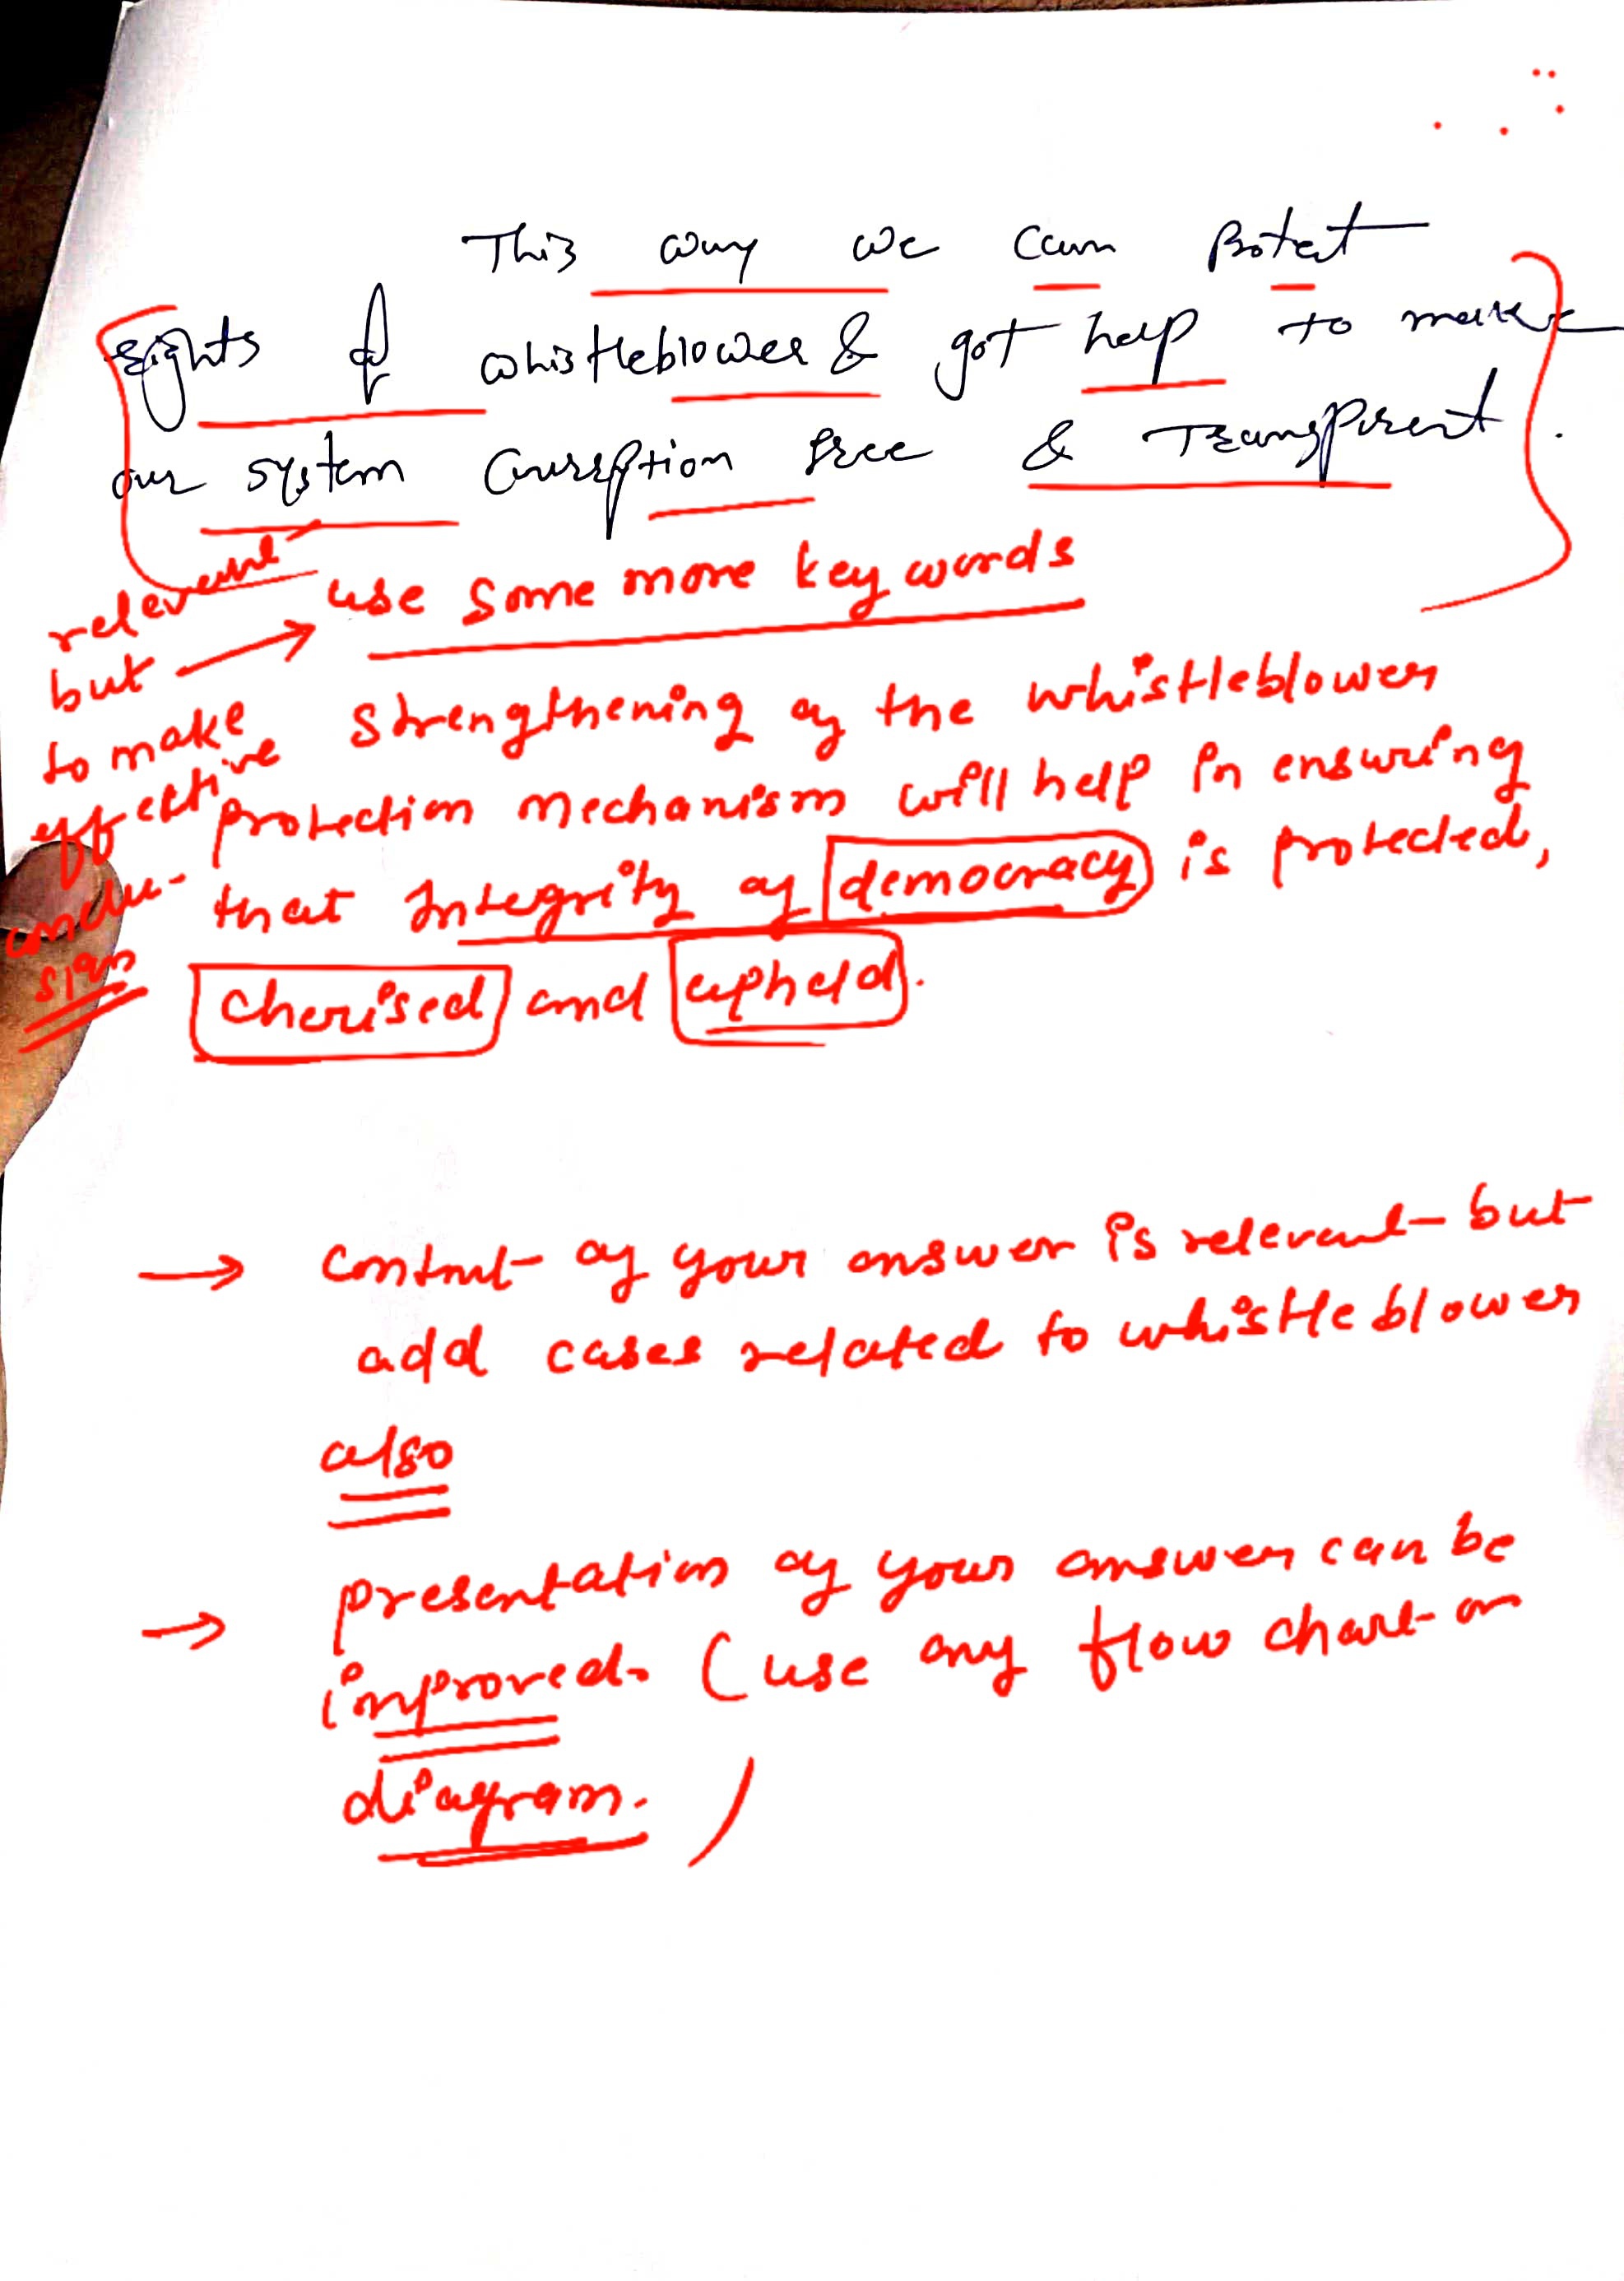 This way we can Protect
rights of whistleblower & got help to make
our system Curreption free & Transprent.
relevant
but → use some more keywords
to make
effective
conclu-
sion
strengthening of the whistleblower
protection mechanism will help in ensuring
that Integrity of democracy is protected,
cherised and upheld.
→ content of your answer is relevant but
add cases related to whistleblower
also
→ presentation of your answer can be
improved. (use any flow chart or
diagram.)